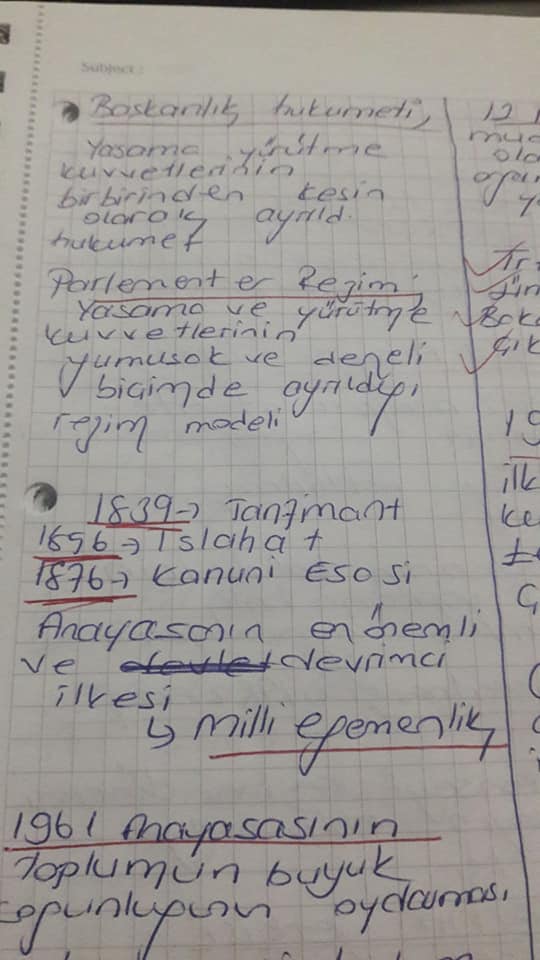 Subject:
Başkanlık hukumeti,
Yasama yürütme
kuvvetlerinin
birbirinden kesin
olarak ayrıld.
hukumet
Parlementer Rejim
Yasama ve yürütme
kuvvetlerinin
yumusak ve dengeli
biçimde ayrıldığı
rejim modeli
1839→ Tanzimant
1896→ Islahat
1876→ Kanuni Esasi
Anayasanın en önemli
ve devrimci
ilkesi
↳ milli egemenlik
1961 Anayasasının
Toplumun büyük
çoğunluğunun oydaması
12
ola
Tr
İlk